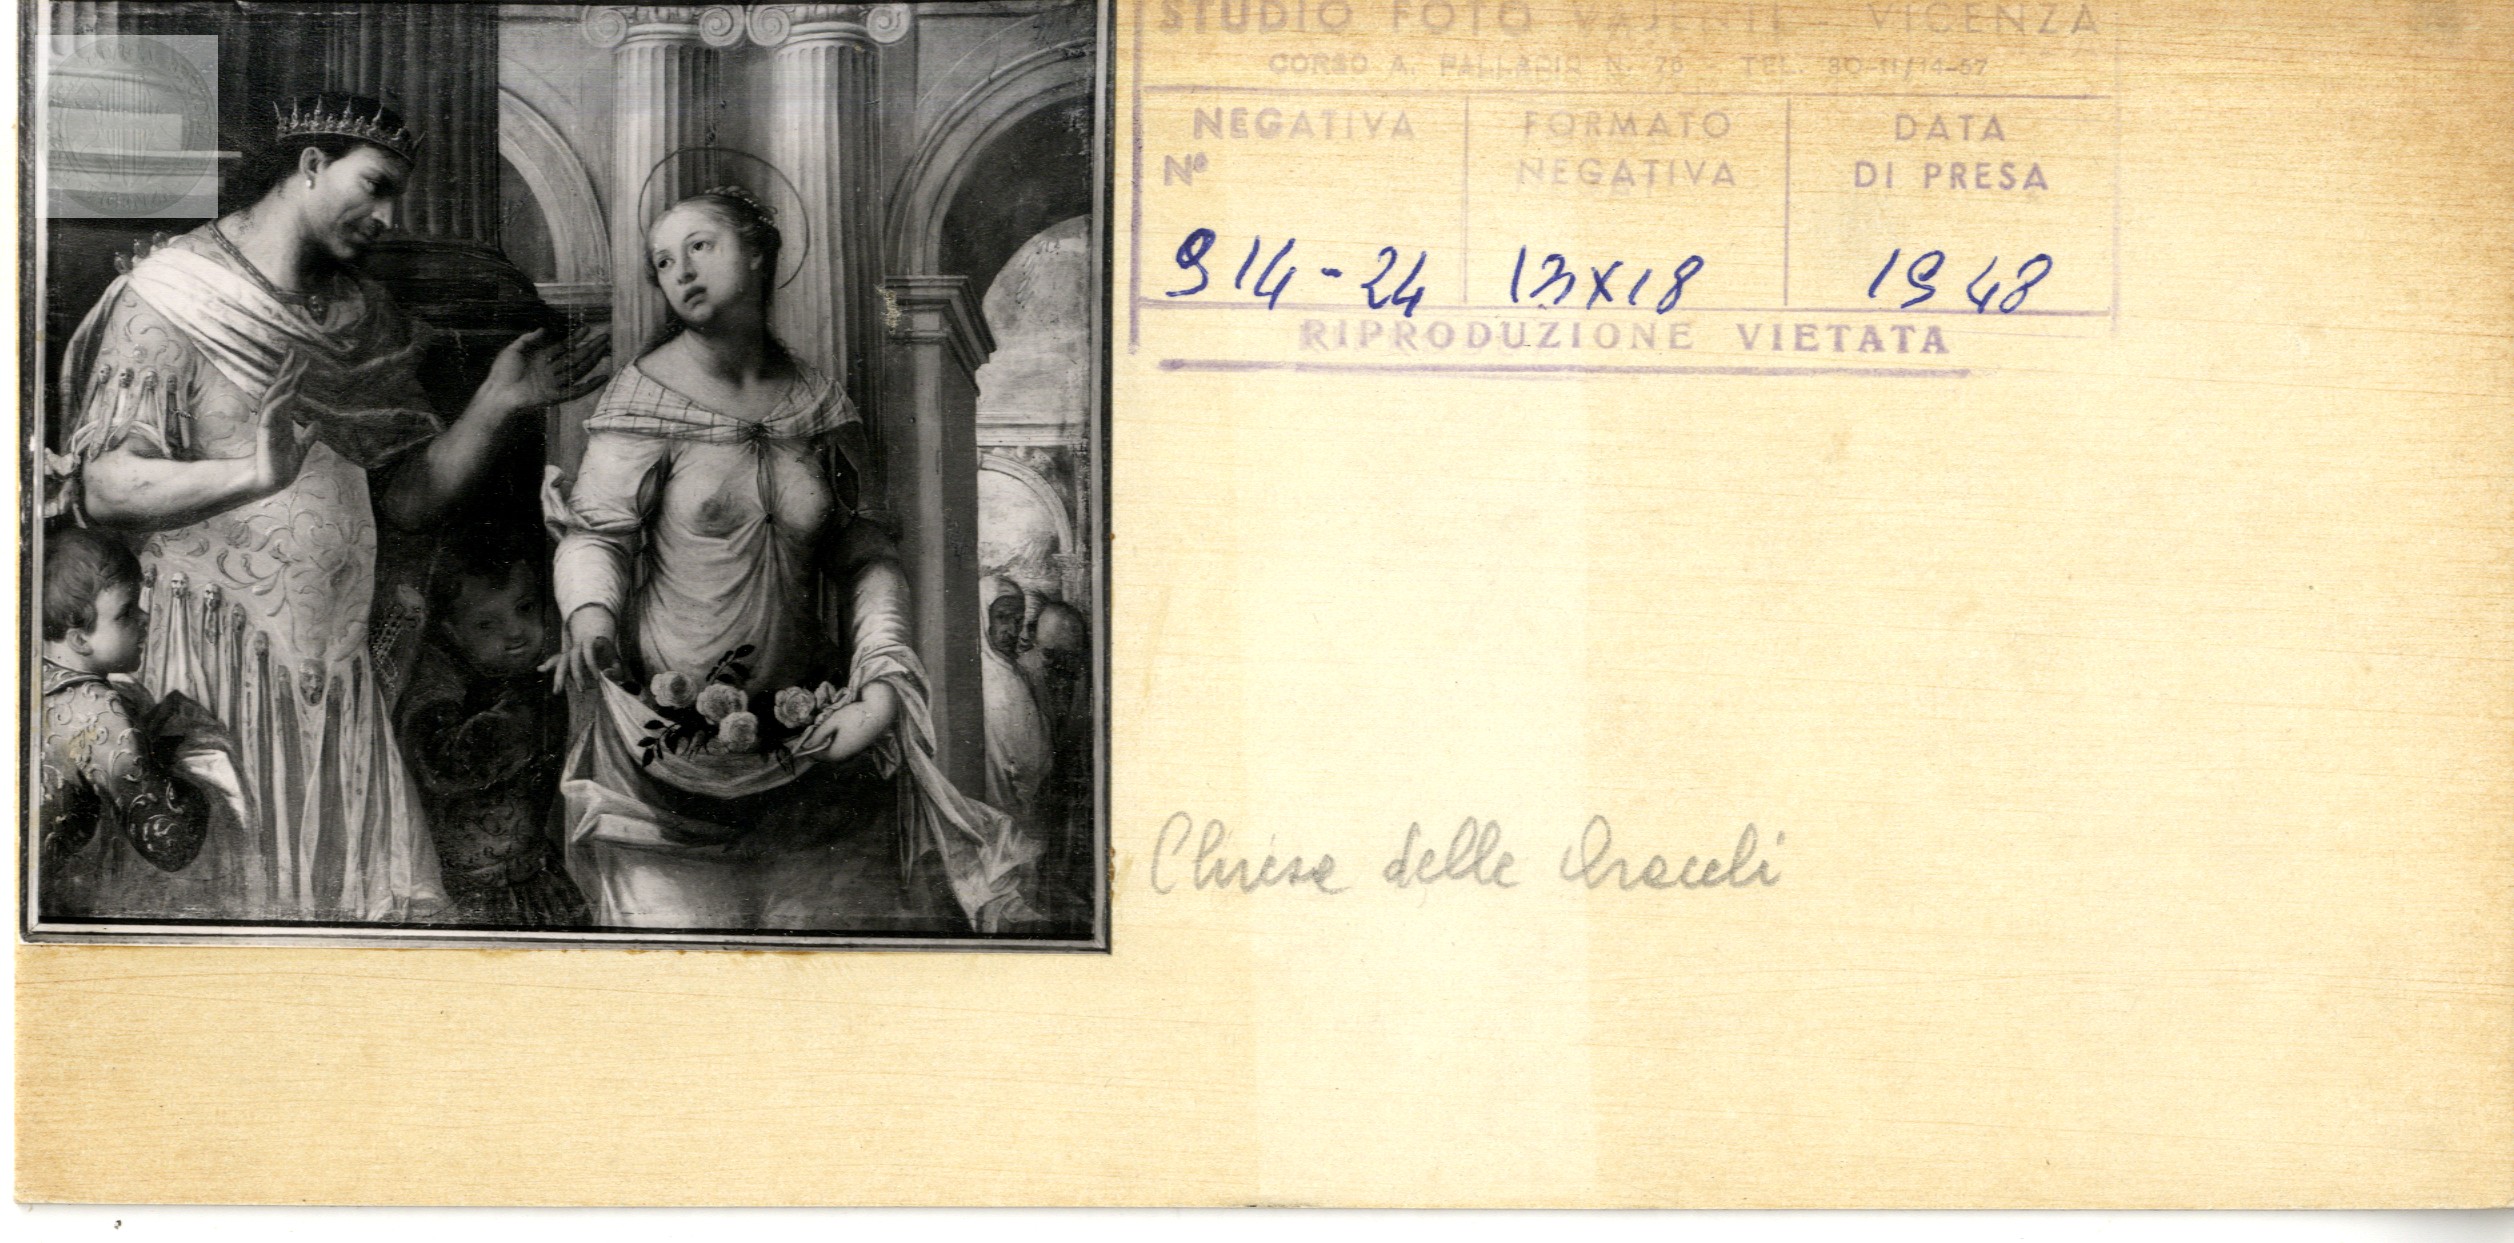 STUDIO FOTO VAJENTI - VICENZA
CORSO A. PALLADIO N. 70 TEL.
NEGATIVA FORMATO DATA
Nº NEGATIVA DI PRESA
914-24 13x18 1948
RIPRODUZIONE VIETATA
Chiesa delle Araceli